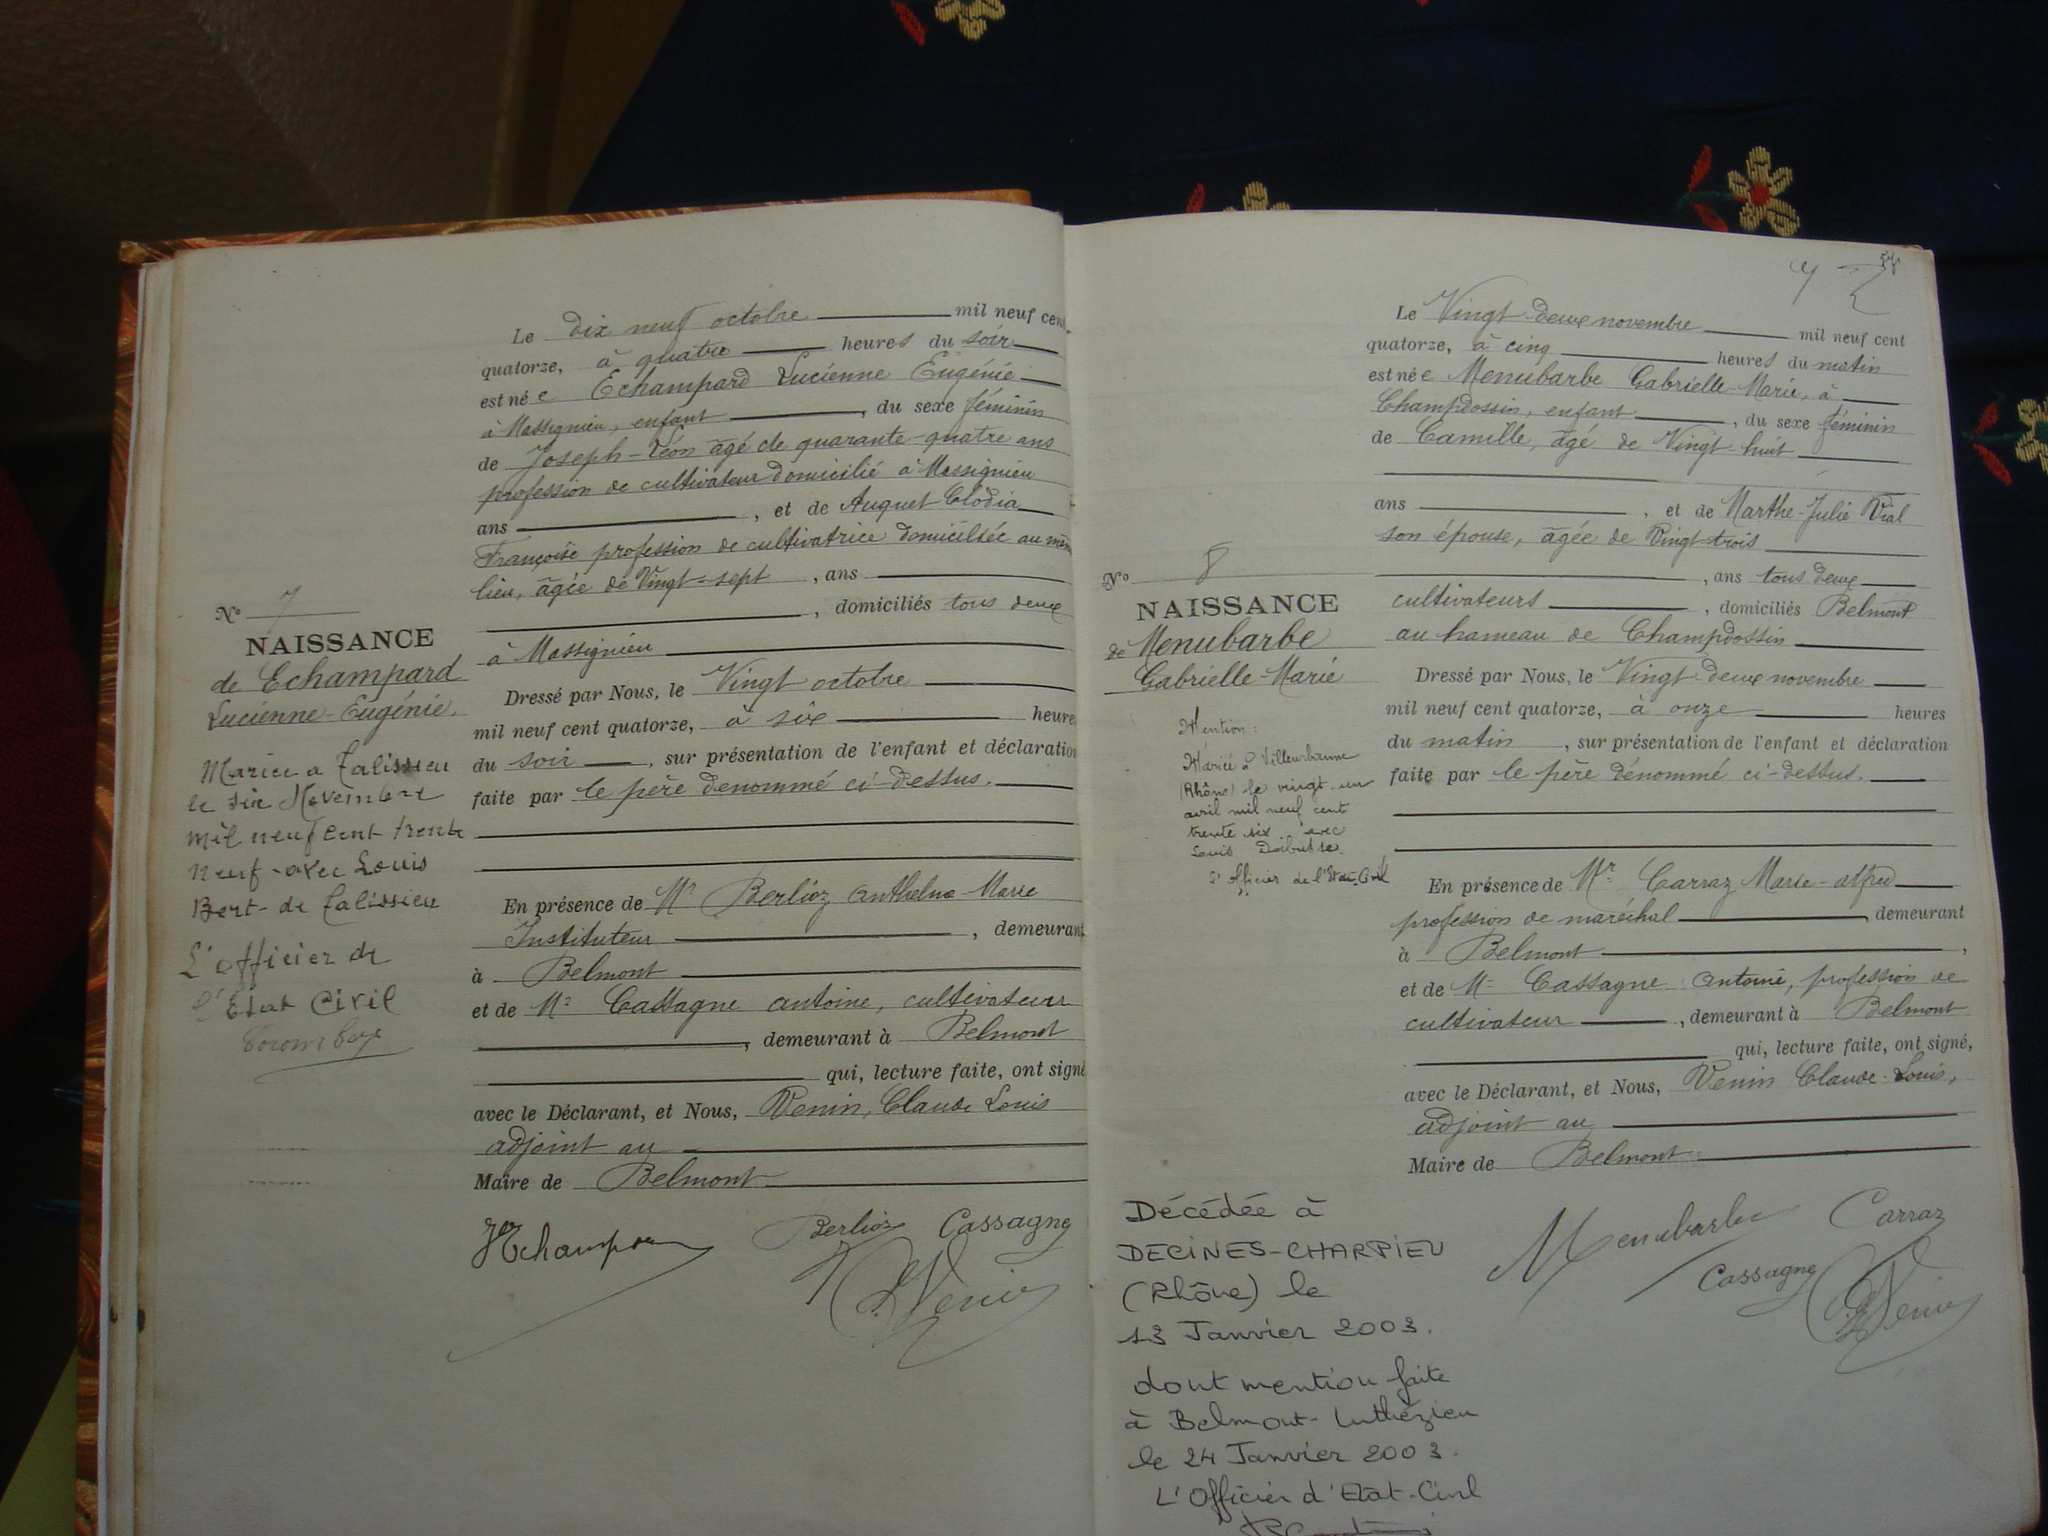 Le dix neuf octobre mil neuf cent
quatorze, à quatre heures du soir
est née Echampard Lucienne Eugénie
à Massignieu, enfant , du sexe féminin
de Joseph-Léon âgé de quarante-quatre ans
profession de cultivateur domicilié à Massignieu
ans , et de Auguet Clôdia
Françoise profession de cultivatrice domiciliée au même
lieu, âgée de Vingt-sept , ans
, domiciliés tous deux
à Massignieu
Dressé par Nous, le Vingt octobre
mil neuf cent quatorze, à six heure
du soir , sur présentation de l'enfant et déclaration
faite par le père dénommé ci-dessus.
En présence de Mr Berlioz Anthelme Marie
Instituteur , demeurant
à Belmont
et de Mr Cassagne Antoine, cultivateur
, demeurant à Belmont
qui, lecture faite, ont signé
avec le Déclarant, et Nous, Venin, Claude Louis
adjoint au
Maire de Belmont
Echampard Berlioz Cassagne
Venin
No 7
NAISSANCE
de Echampard
Lucienne-Eugénie.
Mariée a Talissieu
le six Novembre
mil neuf cent trente
neuf-avec Louis
Bert-de Talissieu
L'officier de
l'Etat Civil
57
7
Le Vingt-deux novembre mil neuf cent
quatorze, à cinq heures du matin
est née Menubarbe Gabrielle-Marie, à
Champdossin, enfant , du sexe féminin
de Camille, âgé de Vingt-huit
ans , et de Marthe-Julie Vial
son épouse, âgée de Vingt-trois
, ans tous deux
cultivateurs , domiciliés Belmont
au hameau de Champdossin
Dressé par Nous, le Vingt-deux novembre
mil neuf cent quatorze, à onze heures
du matin , sur présentation de l'enfant et déclaration
faite par le père dénommé ci-dessus.
En présence de Mr Carraz Marie-Alfred
profession de maréchal , demeurant
à Belmont ,
et de Mr Cassagne Antoine, profession de
cultivateur , demeurant à Belmont
qui, lecture faite, ont signé,
avec le Déclarant, et Nous, Venin Claude-Louis,
adjoint au
Maire de Belmont
Menubarbe Carraz
Cassagne
Venin
No 8
NAISSANCE
de Menubarbe
Gabrielle-Marie
Mention:
Mariée à Villeurbanne
(Rhône) le vingt-un
avril mil neuf cent
trente six avec
Louis
L'Officier de l'Etat-Civil
Décédée à
DECINES-CHARPIEU
(Rhône) le
13 Janvier 2003.
dont mention faite
à Belmont-Luthézieu
le 24 Janvier 2003.
L'Officier d'Etat-Civil